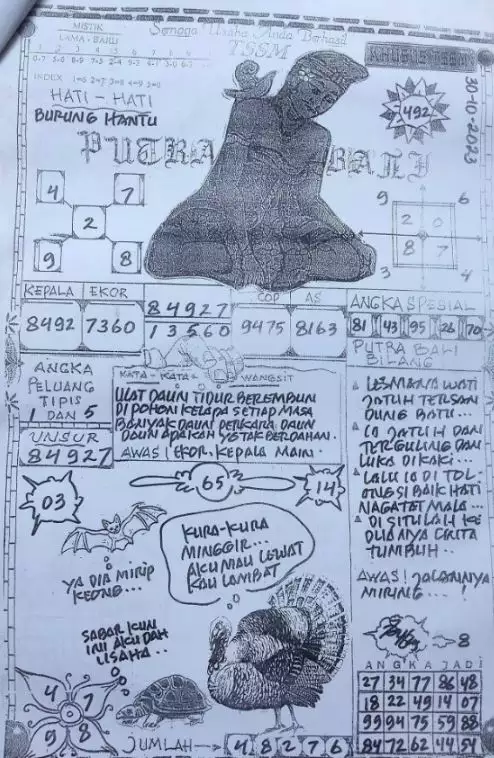 MISTIK
LAMA - BARU
Semoga Usaha Anda Berhasil
TSSM
1 2 3 4 5 6 7 8 9
INDEX
KHUSUS TSSM
HATI - HATI
BURUNG HANTU
30-10-2023
492
PUTRA BALI
4 7
2
9 8
9 6
2 0
8 7
3 4
KEPALA EKOR
8492 7360
84927
13560
COP AS
9475 8163
ANGKA SPESIAL
81 43 95 26 70
ANGKA
PELUANG
TIPIS
1 DAN 5
UNSUR
84927
KATA - KATA - WANGSIT
ULAT DAUN TIDUR BEREMBUN
DI POHON KELAPA SETIAP MASA
BANYAK DAUN PERKARA DAUN
DAUN APAKAH YG TAK BERDAHAN.
AWAS! EKOR. KEPALA MAIN.
PUTRA BALI
BILANG
LESMANA WATI
JATUH TERSAN
DUNG BATU...
IA JATUH DAN
TERGULING DAN
LUKA DIKAKI...
LALU IA DI TOL-
ONG SI BAIK HATI
NAGATATMALA...
DI SITULAH KE
DUANYA CERITA
TUMBUH..
AWAS! JALANNYA
MIRING... !
03
65
14
KURA-KURA
MINGGIR...
AKU MAU LEWAT
KAU LAMBAT
YA DIA MIRIP
KEONG...
SABAR KUN
INI AKU DAH
USAHA..
4 7
9 8
8
JUMLAH
4 8 2 7 6
ANGKA JADI
27 34 77 86 48
18 22 49 14 07
99 94 75 59 88
84 72 62 44 54